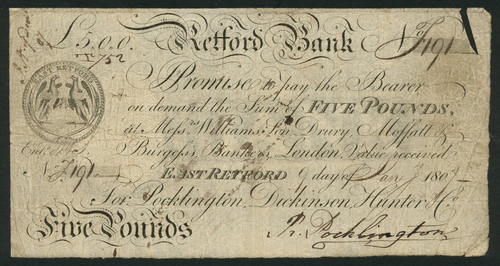 £5.0.0. Retford Bank No F191
EAST RETFORD
I Promise to pay the Bearer
on demand the Sum of FIVE POUNDS,
at Messrs. Williams, Son, Drury, Moffatt &
Burgess, Bankers, London, Value received
No F191 EAST RETFORD 9 day of Jany 180
For Pocklington, Dickinson, Hunter & Co.
Five Pounds R. Pocklington